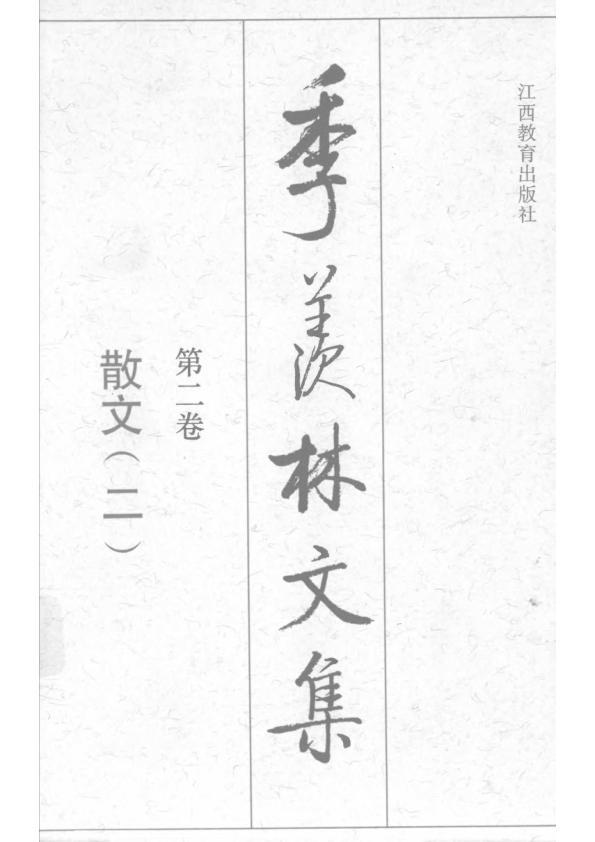 江西教育出版社
季羡林文集
第二卷
散文（二）